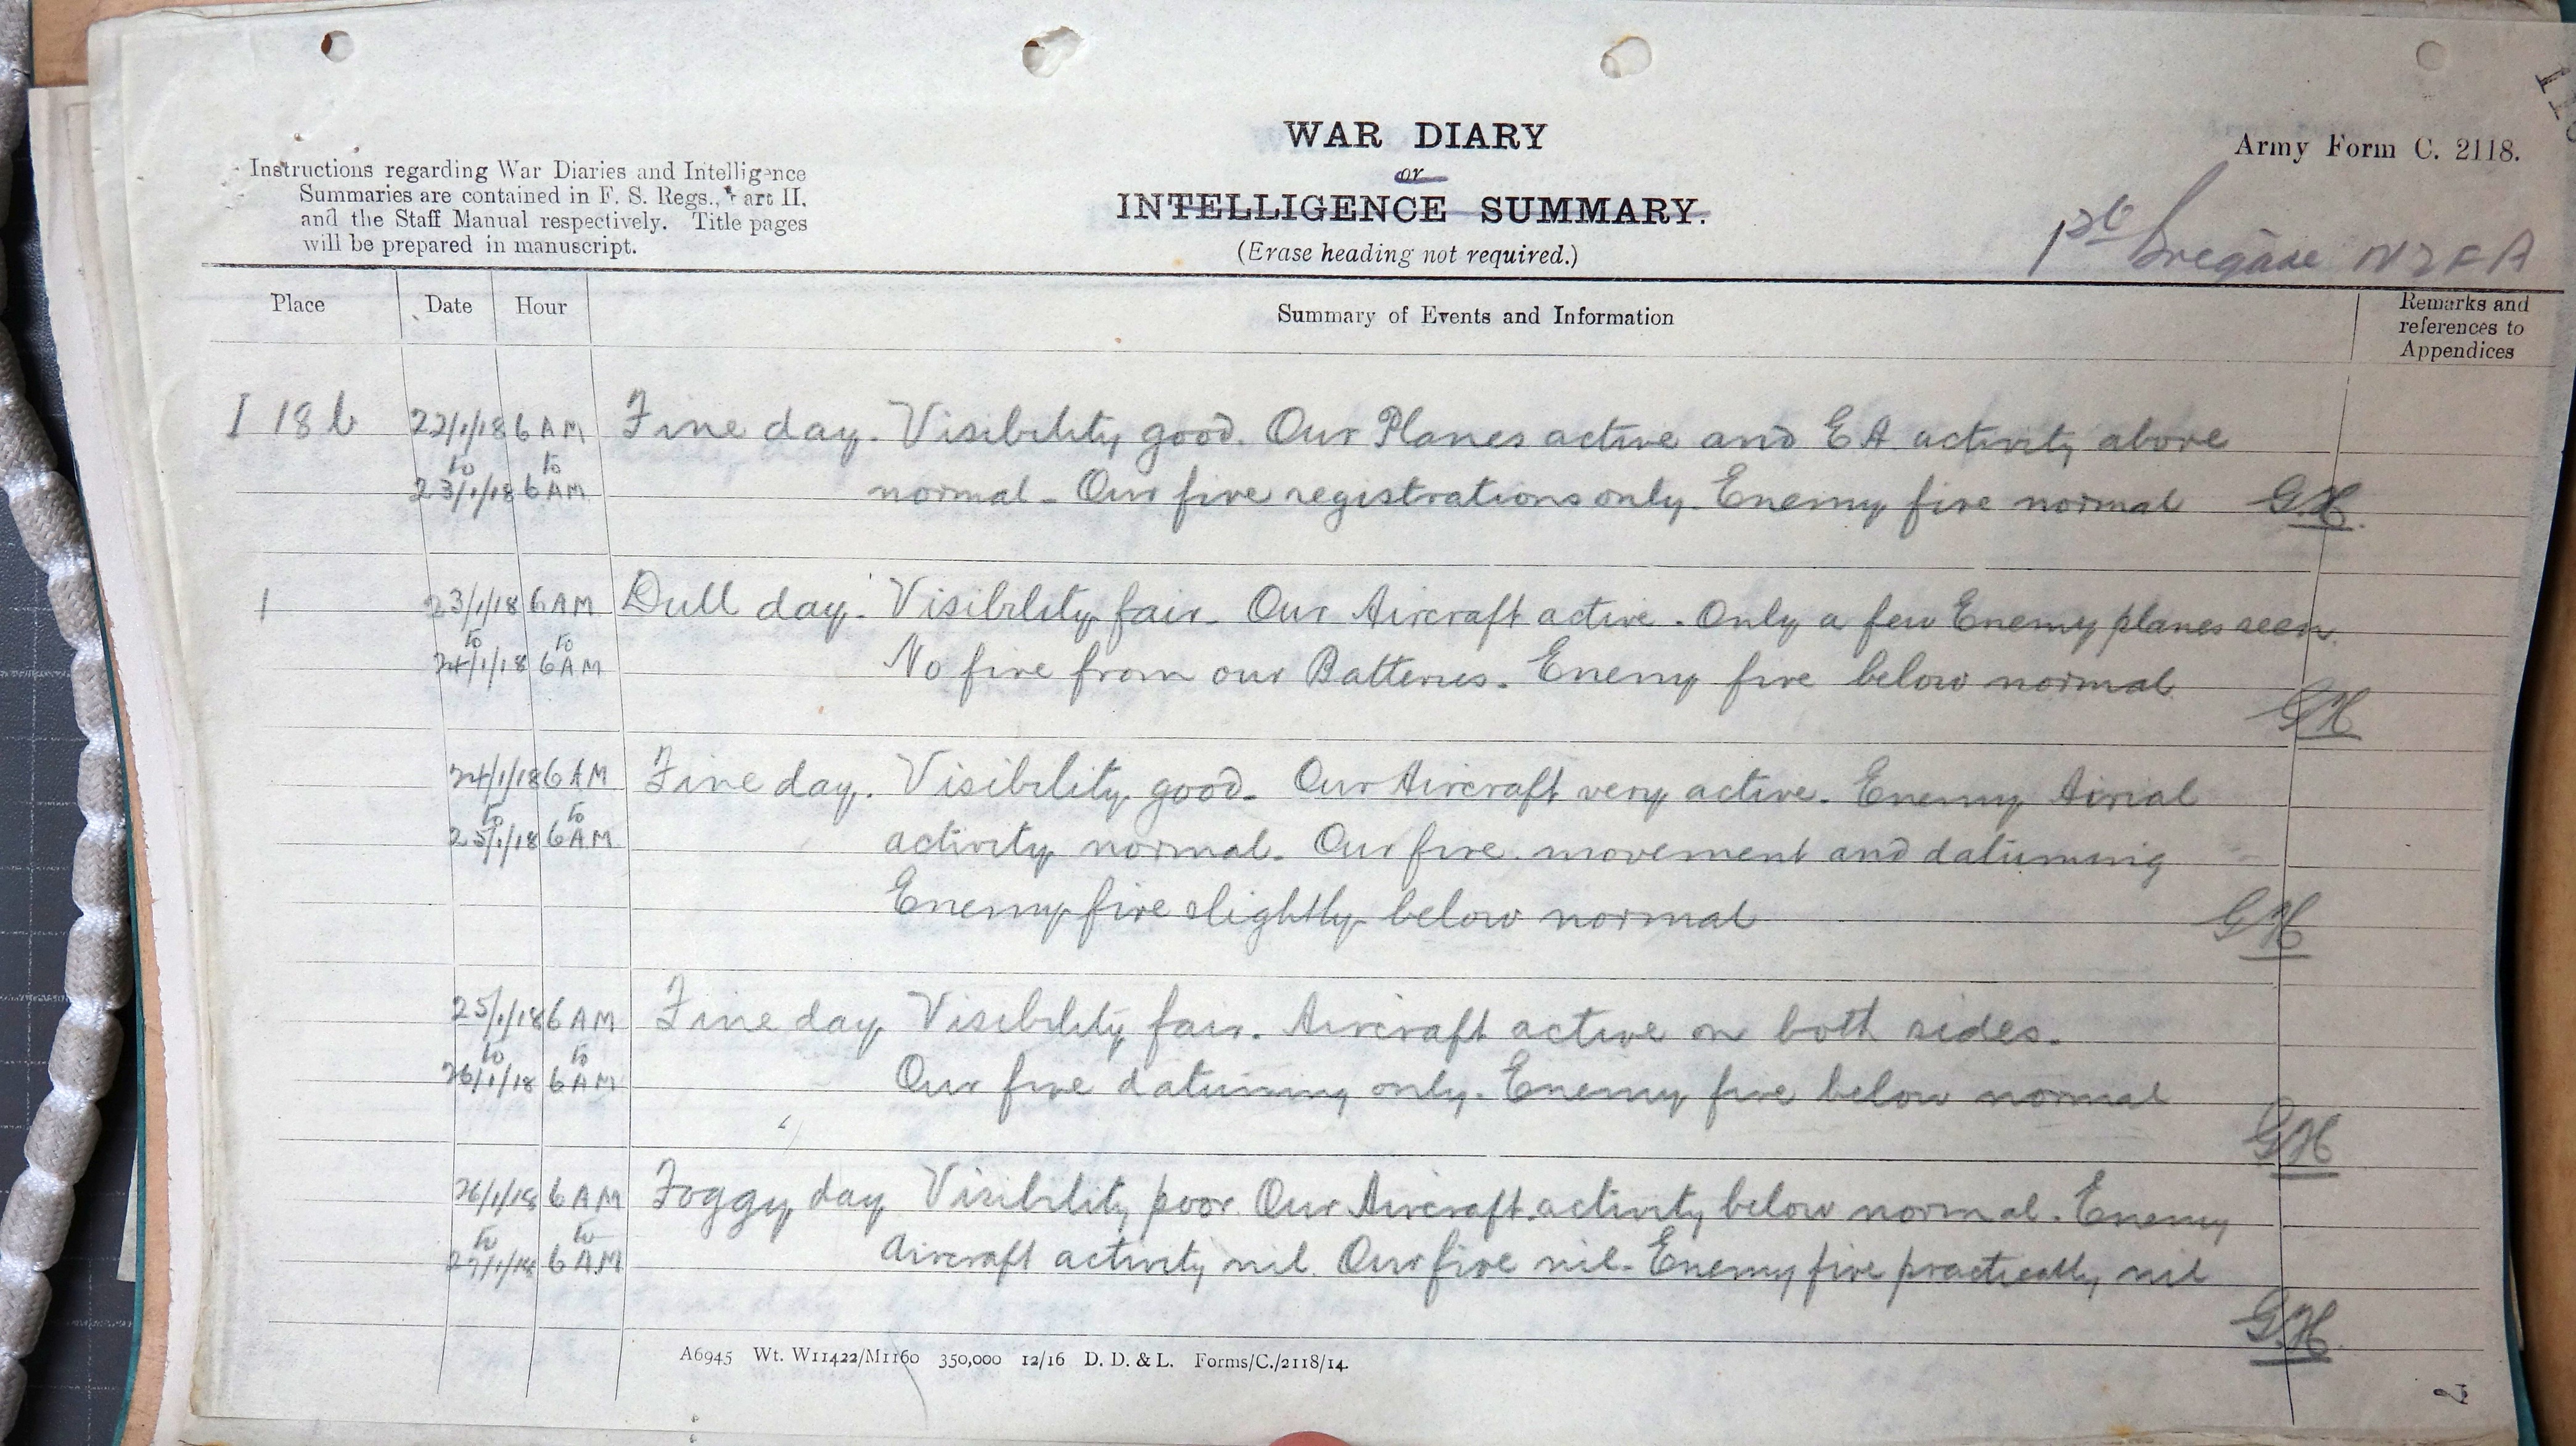 WAR DIARY
or
INTELLIGENCE SUMMARY.
(Erase heading not required.)
Instructions regarding War Diaries and Intelligence
Summaries are contained in F. S. Regs., Part II.
and the Staff Manual respectively. Title pages
will be prepared in manuscript.
Army Form C. 2118.
1st Brigade NZFA
Place Date Hour Summary of Events and Information Remarks and
references to
Appendices
I 18 b 22/1/18 6 AM Fine day. Visibility good. Our Planes active and EA activity above
to to
23/1/18 6 AM normal - Our fire registrations only. Enemy fire normal GH.
23/1/18 6 AM Dull day. Visibility fair. Our Aircraft active. Only a few Enemy planes seen.
to to
24/1/18 6 AM No fire from our Batteries. Enemy fire below normal
GH
24/1/18 6 AM Fine day. Visibility good. Our Aircraft very active. Enemy Airial
to to
25/1/18 6 AM activity normal. Our fire movement and datuming
Enemy fire slightly below normal GH
25/1/18 6 AM Fine day Visibility fair. Aircraft active on both sides.
to to
26/1/18 6 AM Our fire datuming only. Enemy fire below normal
GH
26/1/18 6 AM Foggy day Visibility poor. Our Aircraft activity below normal. Enemy
to to
27/1/18 6 AM Aircraft activity nil. Our fire nil. Enemy fire practically nil
GH
A6945 Wt. W11422/M1160 350,000 12/16 D. D. & L. Forms/C./2118/14.